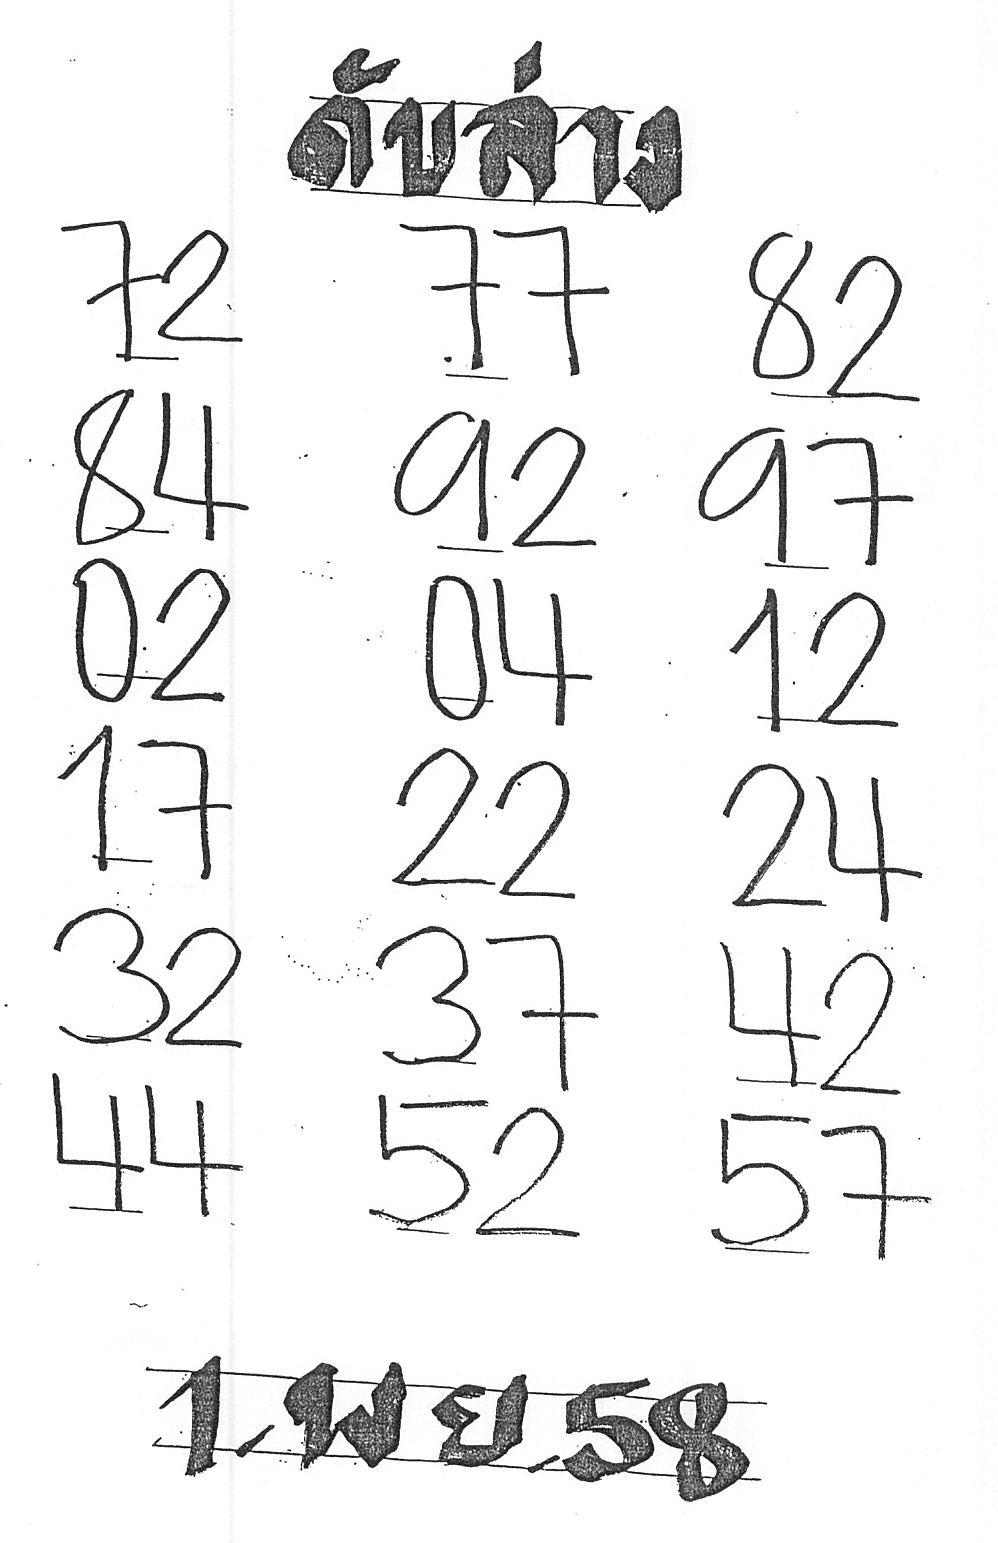 ดับล่าง
72 77 82
84 92 97
02 04 12
17 22 24
32 37 42
44 52 57
1.พ.ย.58